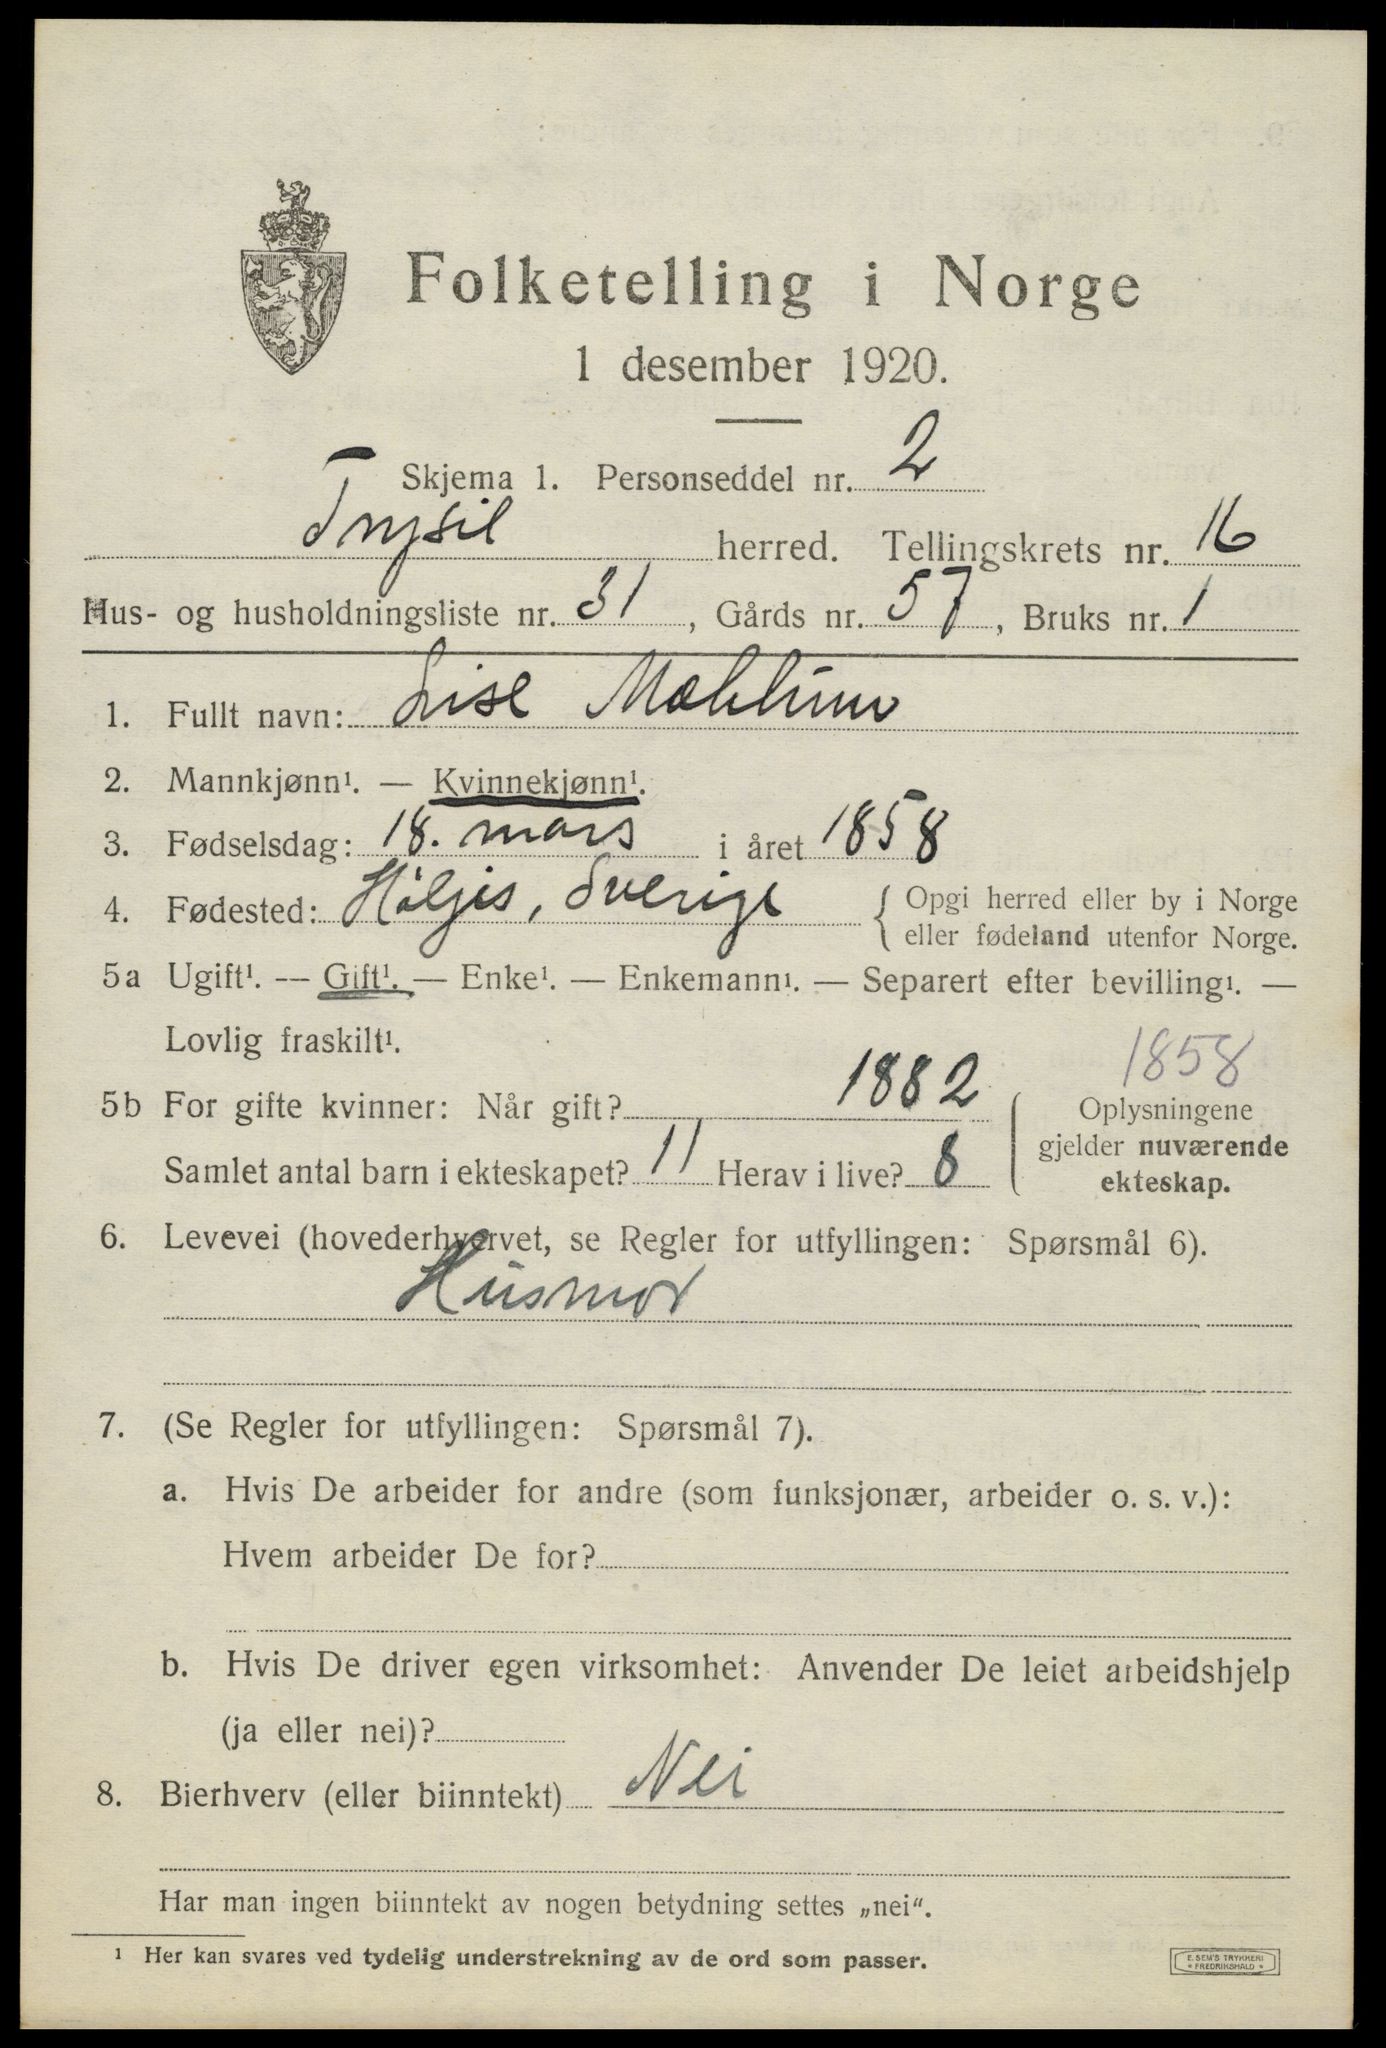 Folketelling i Norge
1 desember 1920.
Skjema 1. Personseddel nr. 2
Trysil herred. Tellingskrets nr. 16
Hus- og husholdningsliste nr. 31, Gårds nr. 57, Bruks nr. 1
1. Fullt navn: Lise
2. Mannkjønn¹. — Kvinnekjønn¹.
3. Fødselsdag: 18. mars i året 1858
4. Fødested: Höljes, Sverige { Opgi herred eller by i Norge
eller fødeland utenfor Norge.
5a Ugift¹. — Gift¹. — Enke¹. — Enkemann¹. — Separert efter bevilling¹. —
Lovlig fraskilt¹.
1858
5b For gifte kvinner: Når gift? 1882
Samlet antal barn i ekteskapet? 11 Herav i live? 8
Oplysningene
gjelder nuværende
ekteskap.
6. Levevei (hovederhvervet, se Regler for utfyllingen: Spørsmål 6).
Husmor
7. (Se Regler for utfyllingen: Spørsmål 7).
a. Hvis De arbeider for andre (som funksjonær, arbeider o. s. v.):
Hvem arbeider De for?
b. Hvis De driver egen virksomhet: Anvender De leiet arbeidshjelp
(ja eller nei)?
8. Bierhverv (eller biinntekt) Nei
Har man ingen biinntekt av nogen betydning settes „nei“.
¹ Her kan svares ved tydelig understrekning av de ord som passer.
E. SEM'S TRYKKERI
* FREDRIKSHALD *